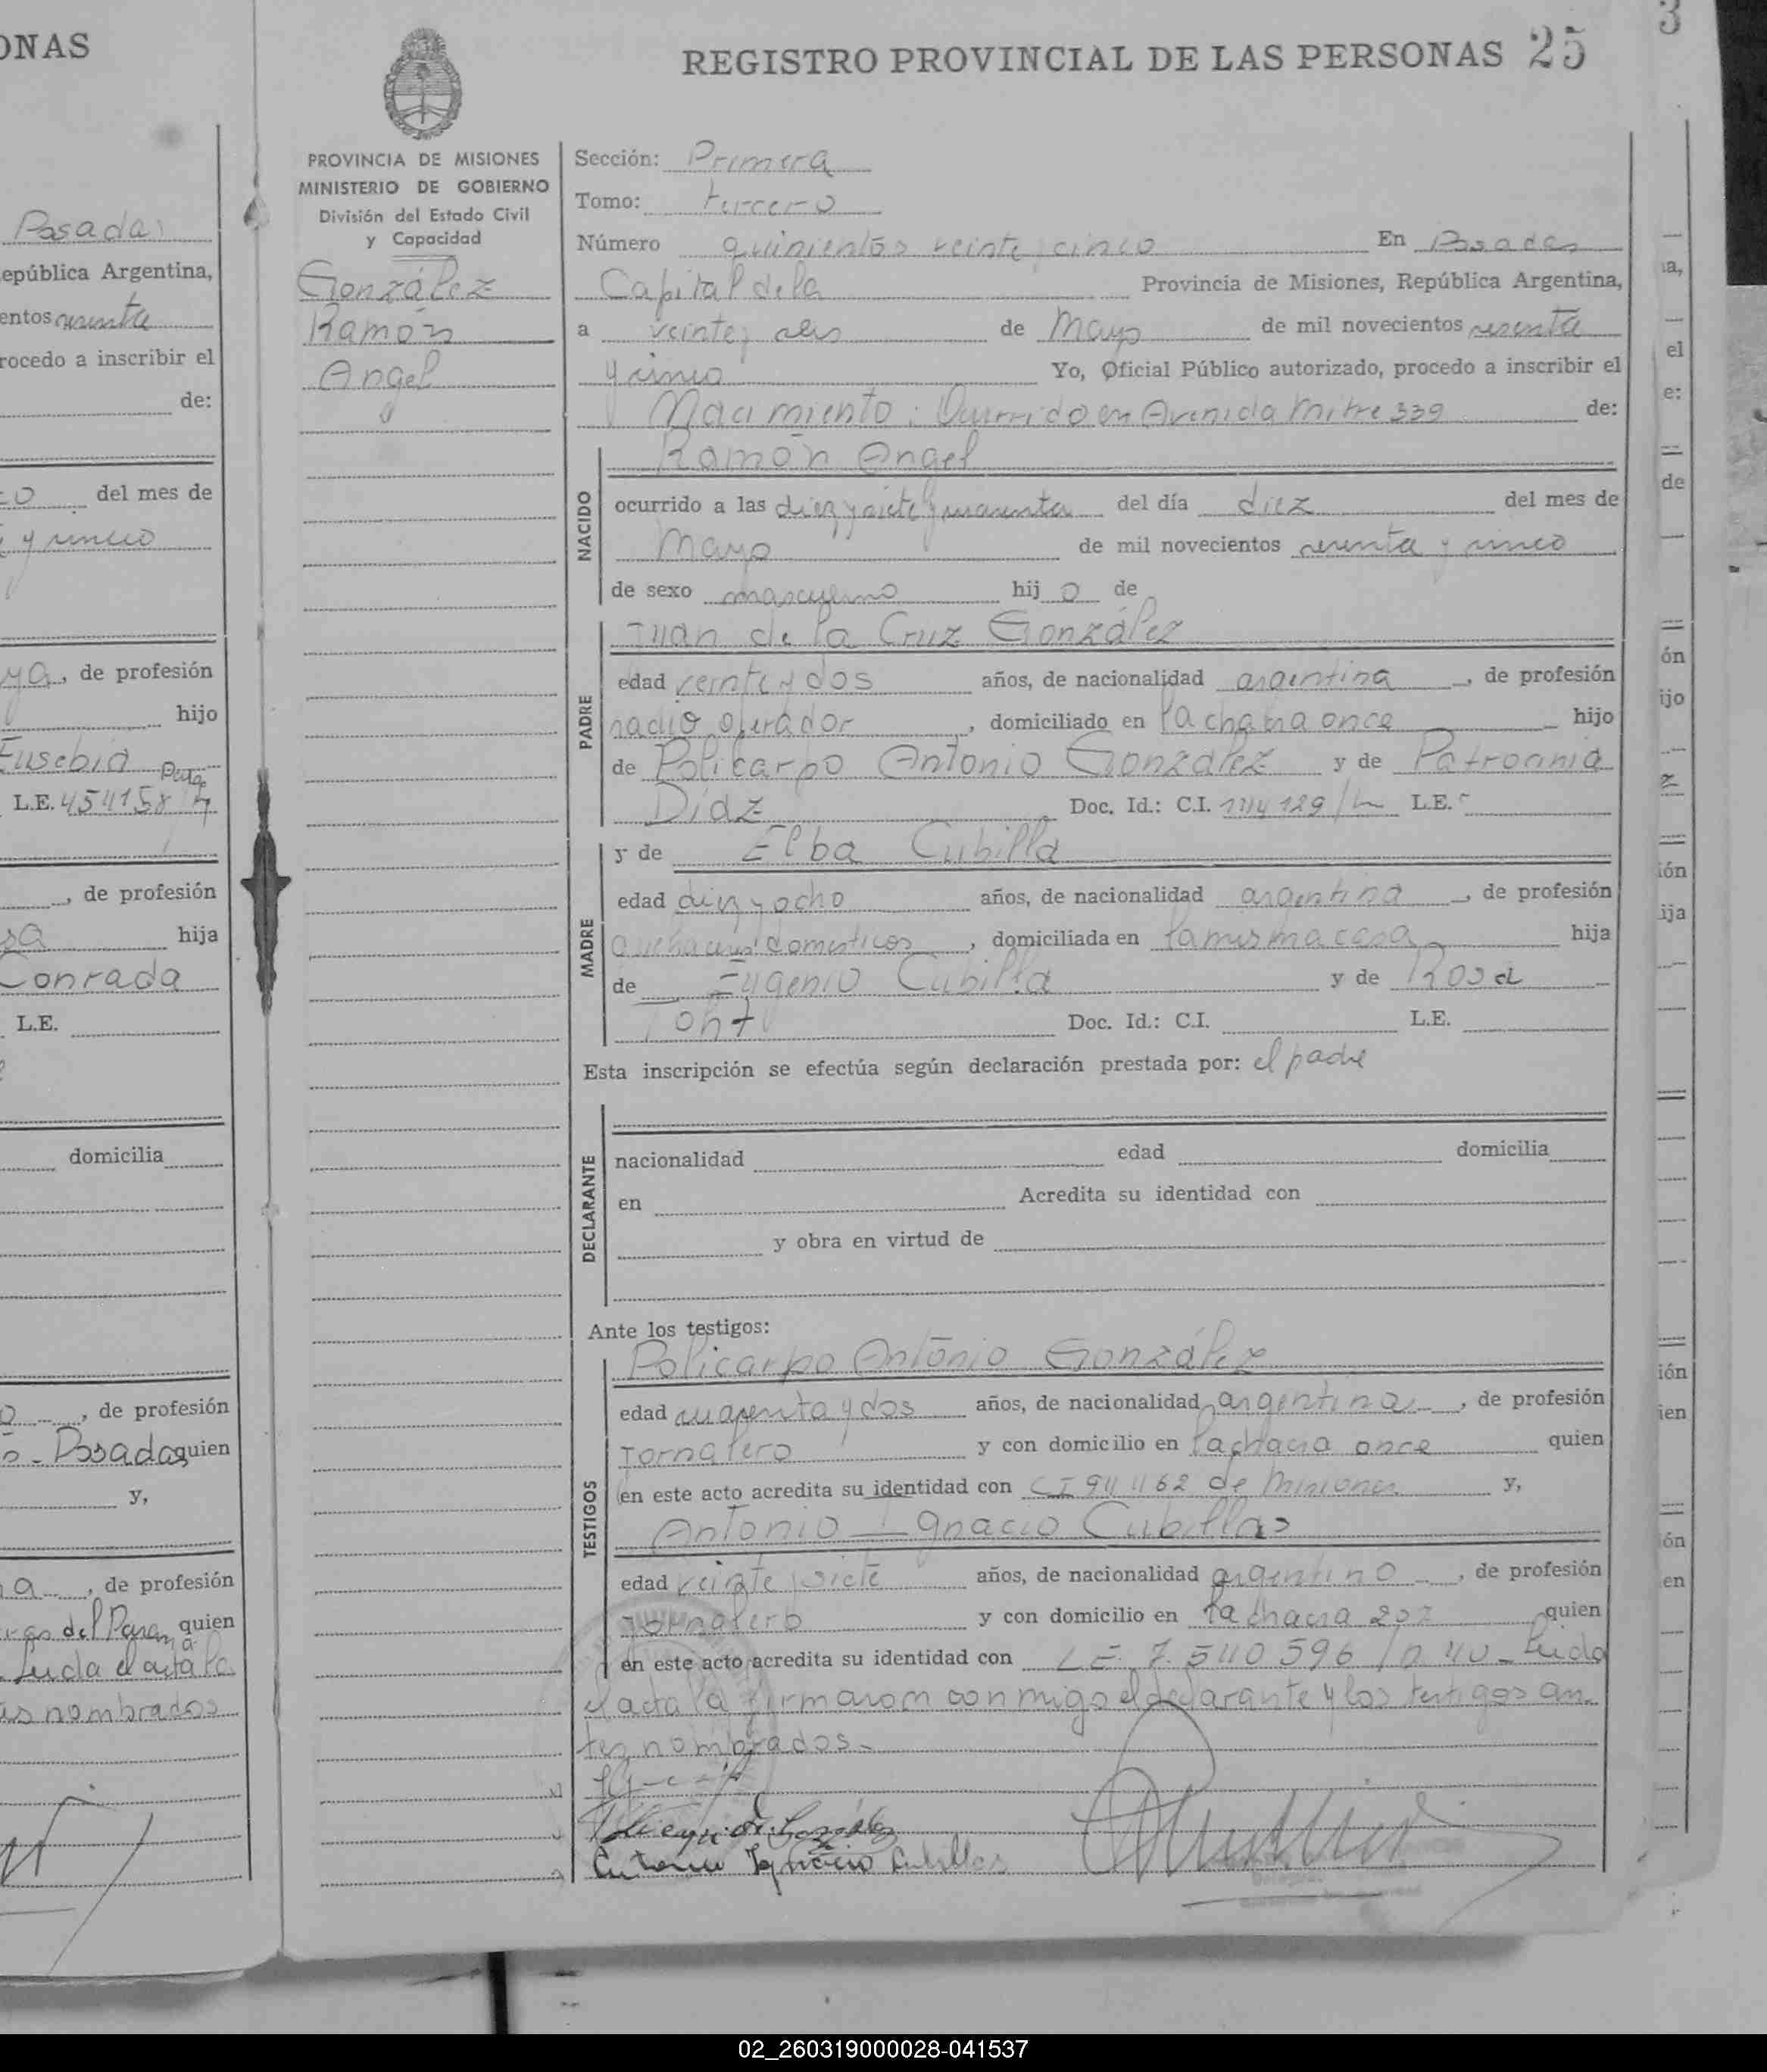 ONAS
Posadas
epública Argentina,
entos sesenta
rocedo a inscribir el
de:
co del mes de
y cinco
ya, de profesión
hijo
Eusebia
L.E. 454158
, de profesión
sa hija
Conrada
L.E.
domicilia
o , de profesión
Posadas quien
y,
a , de profesión
del Paraná quien
Leida el acta la
nombrados
REGISTRO PROVINCIAL DE LAS PERSONAS 25
PROVINCIA DE MISIONES
MINISTERIO DE GOBIERNO
División del Estado Civil
y Capacidad
González
Ramón
Angel
Sección: Primera
Tomo: tercero
Número quinientos veinte y cinco En Posadas
Capital de la Provincia de Misiones, República Argentina,
a veinte y seis de Mayo de mil novecientos sesenta
y cinco Yo, Oficial Público autorizado, procedo a inscribir el
Nacimiento: Ocurrido en Avenida Mitre 339 de:
Ramón Angel
NACIDO
ocurrido a las diez y siete y cuarenta del día diez del mes de
Mayo de mil novecientos sesenta y cinco
de sexo masculino hij o de
Juan de la Cruz González
PADRE
edad veinte y dos años, de nacionalidad argentina, de profesión
radio operador, domiciliado en la chacra once hijo
de Policarpo Antonio González y de Patrocinia
Díaz Doc. Id.: C.I. L.E.
MADRE
y de Elba Cubilla
edad diez y ocho años, de nacionalidad argentina, de profesión
quehaceres domesticos, domiciliada en la misma casa hija
de Eugenio Cubilla y de Rosa
Doc. Id.: C.I. L.E.
Esta inscripción se efectúa según declaración prestada por: el padre
DECLARANTE
nacionalidad edad domicilia
en Acredita su identidad con
y obra en virtud de
Ante los testigos:
TESTIGOS
Policarpo Antonio González
edad cuarenta y dos años, de nacionalidad argentina, de profesión
Jornalero y con domicilio en la chacra once quien
en este acto acredita su identidad con CI de Misiones y,
Antonio Ignacio Cubillas
edad veinte y siete años, de nacionalidad argentino, de profesión
Jornalero y con domicilio en la chacra 202 quien
en este acto acredita su identidad con L.E. 7.540.596 Leida
el acta la firmaron conmigo el declarante y los testigos an
tes nombrados.-
González
Antonio Ignacio Cubillas
02_260319000028-041537